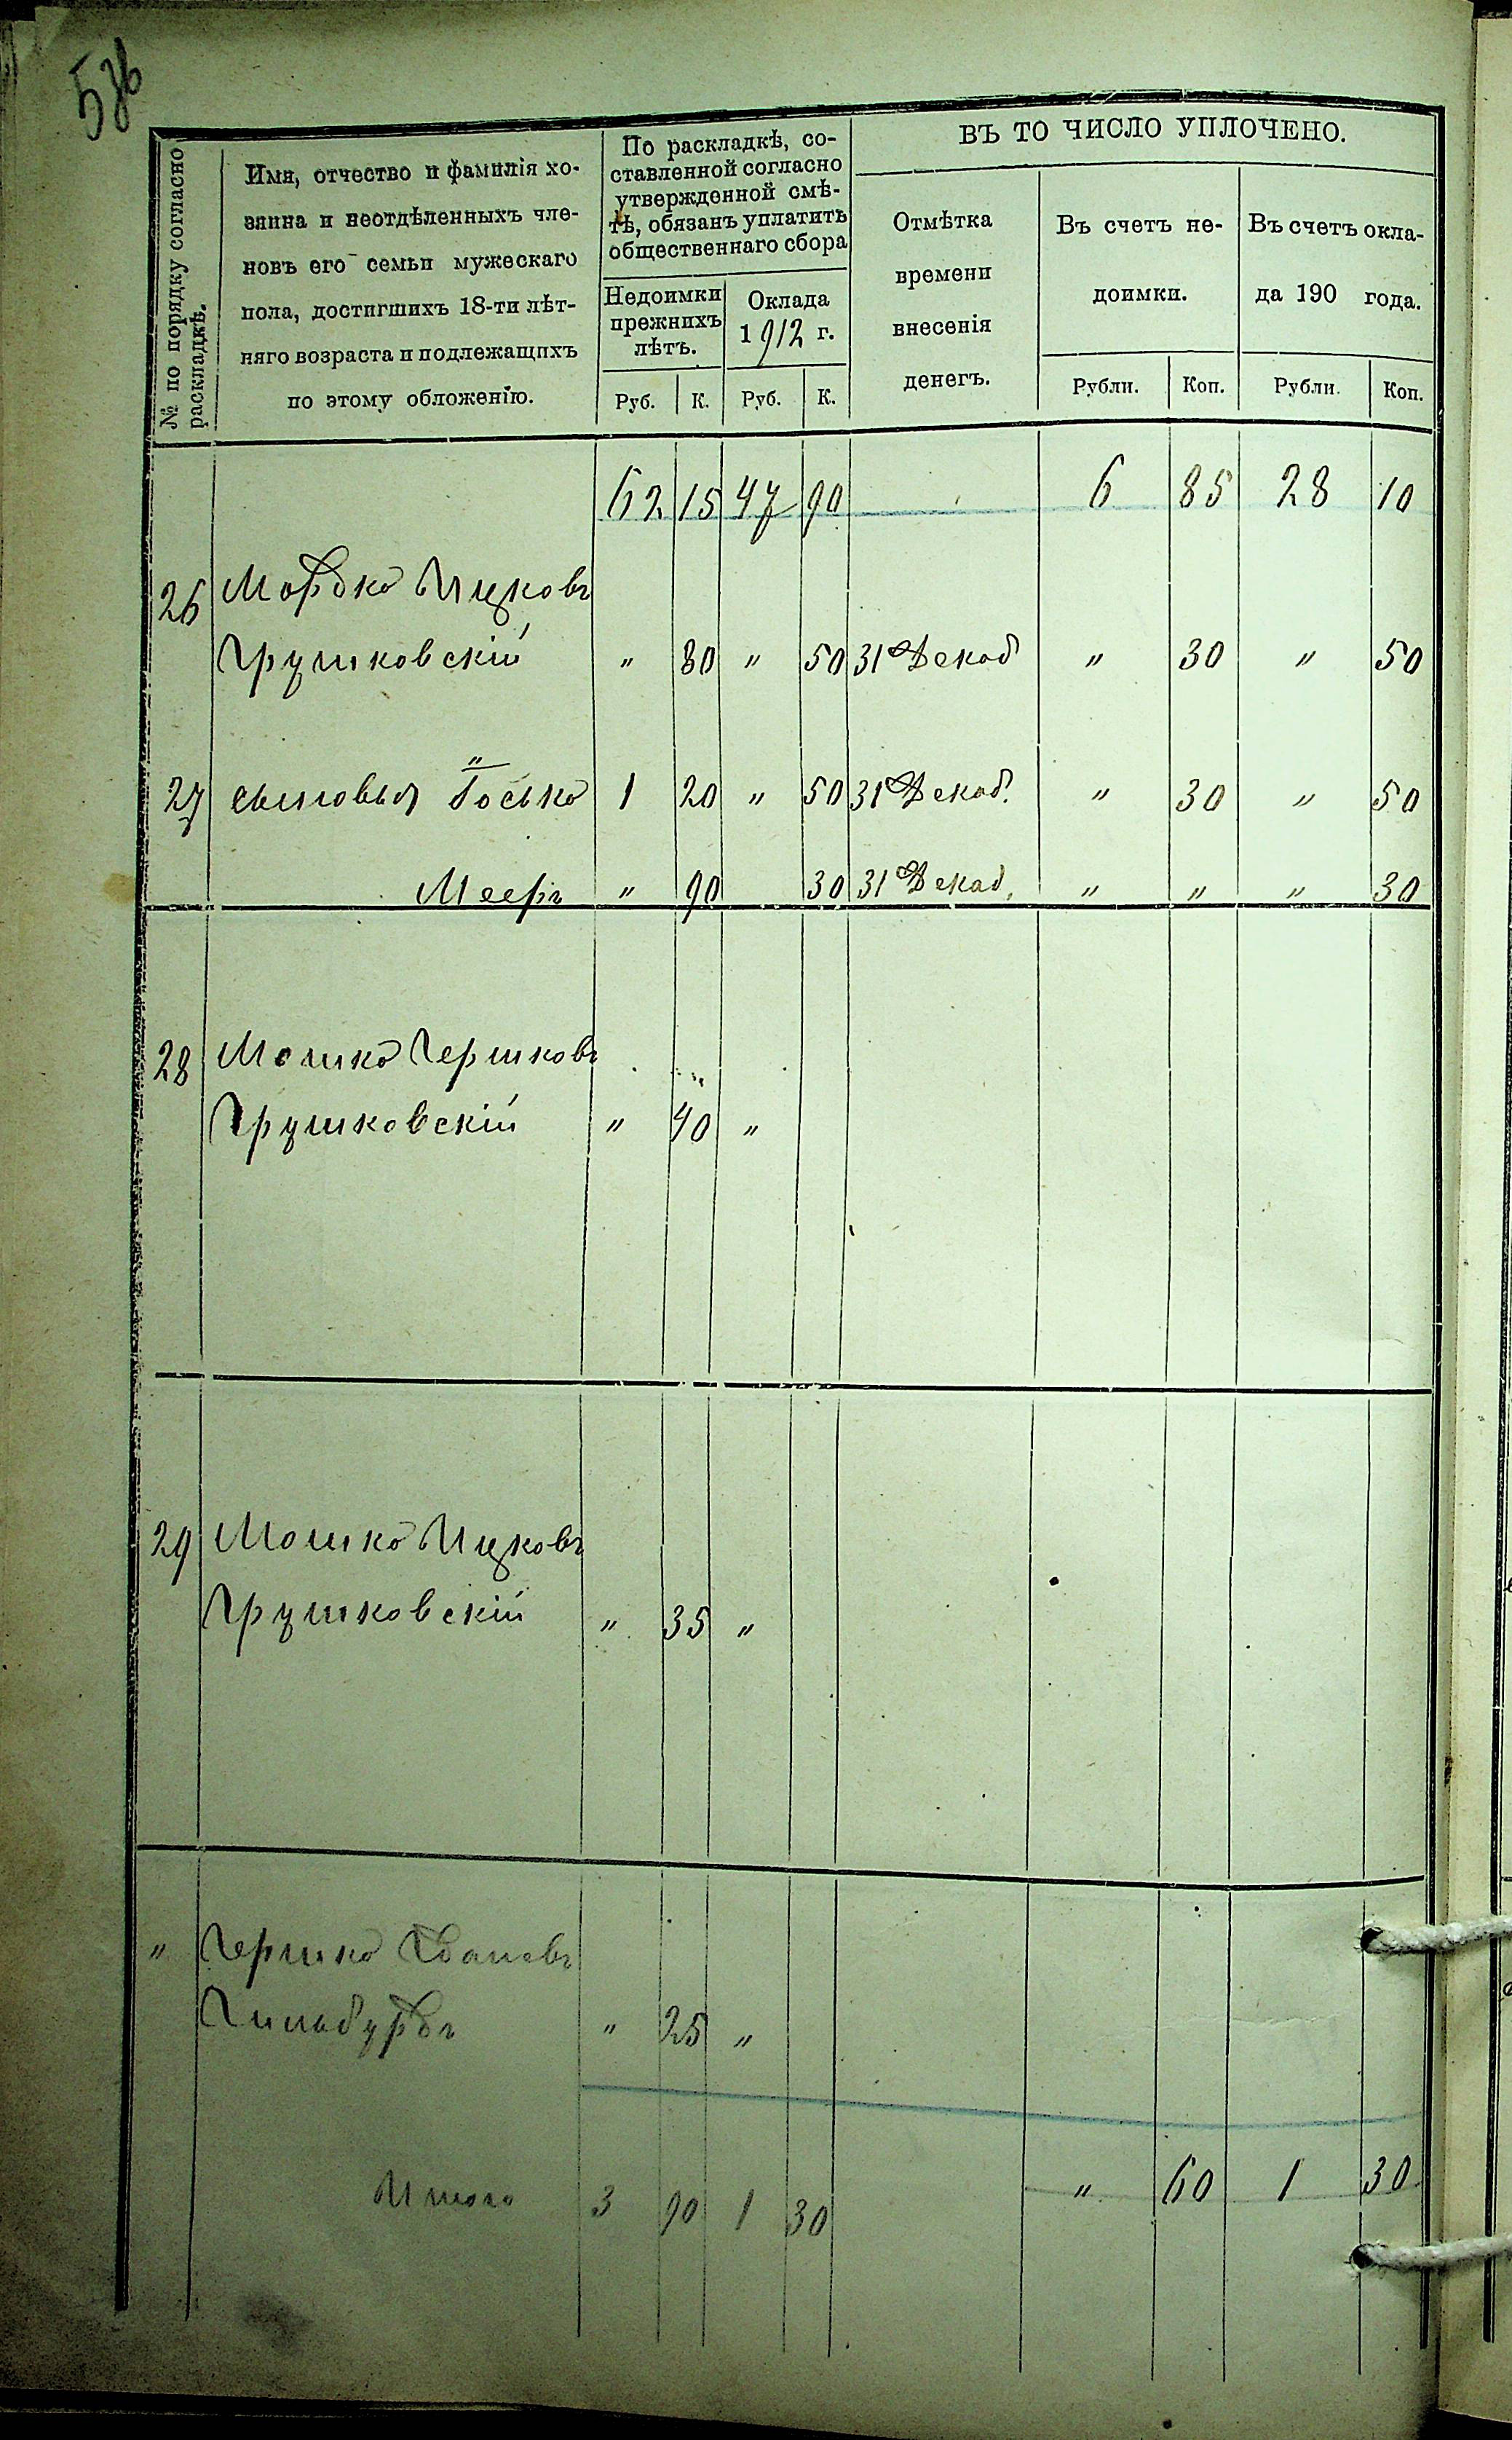 53б
ВЪ ТО ЧИСЛО УПЛОЧЕНО.
№ по порядку согласно
раскладкѣ.
Имя, отчество и фамилія хо-
зяина и неотдѣленныхъ чле-
новъ его семьи мужескаго
пола, достигшихъ 18-ти лѣт-
няго возраста и подлежащихъ
по этому обложенію.
По раскладкѣ, со-
ставленной согласно
утвержденной смѣ-
тѣ, обязанъ уплатить
общественнаго сбора
Недоимки
прежнихъ
лѣтъ.
Оклада
1912 г.
Отмѣтка
времени
внесенія
денегъ.
Въ счетъ не-
доимки.
Въ счетъ окла-
да 190 года.
Руб. К. Руб. К. Рубли. Коп. Рубли. Коп.
62 15 47 90 6 85 28 10
26 Мордко Ицковъ
Грушковскій " 80 " 50 31 Декаб " 30 " 50
27 сыновья Іосько 1 20 " 50 31 Декаб. " 30 " 50
Мееръ " 90 30 31 Декаб. " " " 30
28 Мошко Гершковъ
Грушковскій " 40 "
29 Мошко Ицковъ
Грушковскій " 35 "
" Гершко
Гильбурдъ " 25 "
Итого 3 90 1 30 " 60 1 30